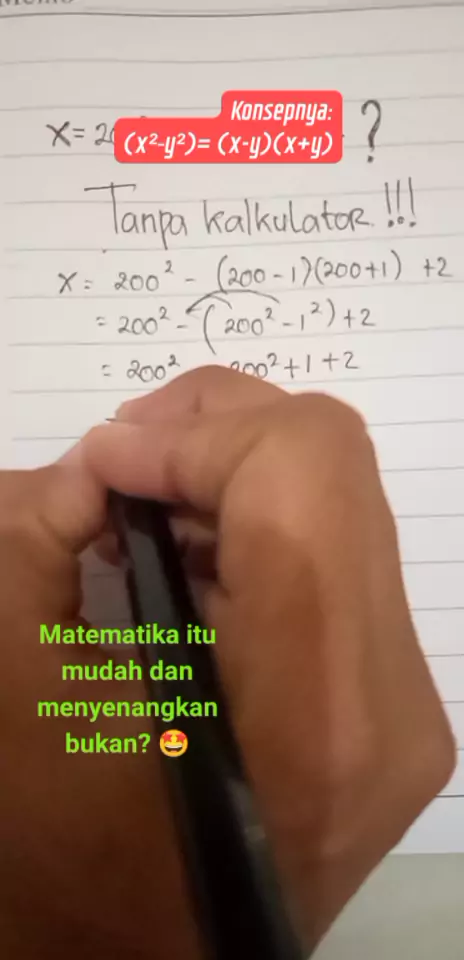 Konsepnya:
(x²-y²)= (x-y)(x+y)
x= 20 ?
Tanpa kalkulator !!!
x = 200² - (200-1)(200+1) +2
= 200² - (200² - 1²) +2
= 200² 200² +1 +2
Matematika itu
mudah dan
menyenangkan
bukan? 🤩